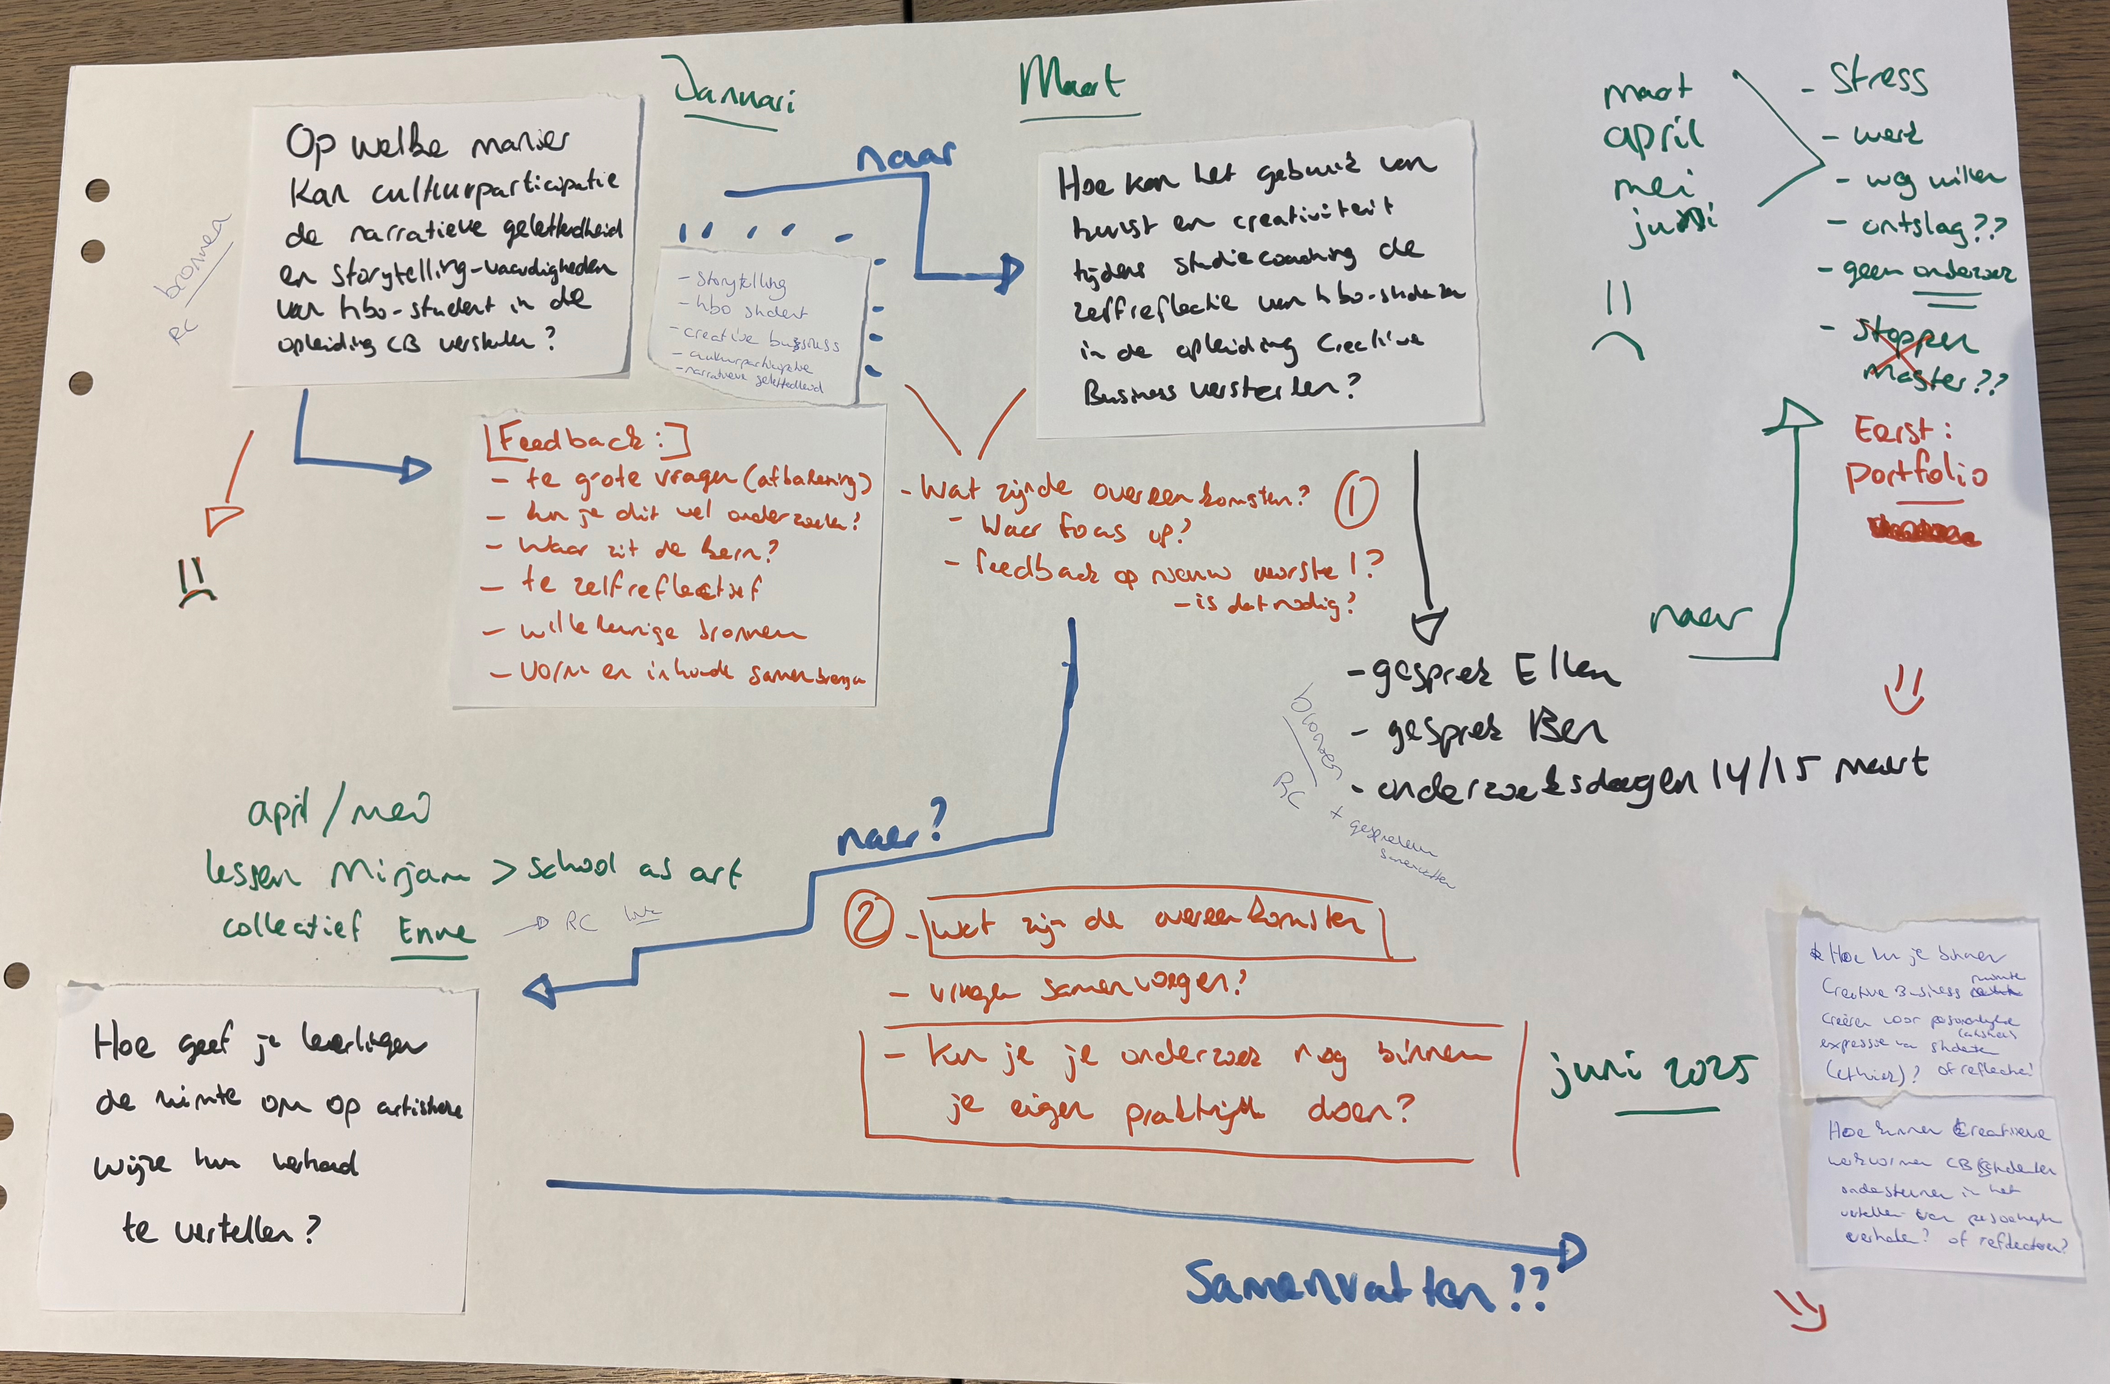 Januari
Op welke manier
kan cultuurparticipatie
de narratieve geletterdheid
en storytelling-vaardigheden
van hbo-student in de
opleiding CB versterken?
bronnen
RC
naar
- storytelling
- hbo student
- creative business
- cultuurparticipatie
- narratieve geletterdheid
[Feedback:]
- te grote vragen (afbakening)
- kun je dit wel onderzoeken?
- Waar zit de kern?
- te zelfreflectief
- willekeurige bronnen
- vorm en inhoud samenbrengen
Maart
Hoe kan het gebruik van
kunst en creativiteit
tijdens studiecoaching de
zelfreflectie van hbo-studenten
in de opleiding Creative
Business versterken?
- Wat zijn de overeenkomsten? 1
- Waar focus op?
- feedback op nieuw voorstel?
- is dat nodig?
- gesprek Ellen
- gesprek Ben
- onderzoeksdagen 14/15 maart
bronnen
RC
+ gesprekken
samenvatten
naar
maart
april
mei
juni
- Stress
- werk
- weg willen
- ontslag??
- geen onderzoek
- stoppen
master??
Eerst:
portfolio
naar?
april/mei
lessen Mirjam > school as art
collectief Enne
RC
Hoe geef je leerlingen
de ruimte om op artistieke
wijze hun verhaal
te vertellen?
2 - Wat zijn de overeenkomsten
- vragen samenvoegen?
- Kun je je onderzoek nog binnen
je eigen praktijk doen?
juni 2025
Samenvatten??
* Hoe kun je binnen
Creative Business ruimte
creëren voor persoonlijke
expressie van studenten
(ethiek)? of reflectie?
Hoe kunnen Creatieve
werkvormen CB studenten
ondersteunen in het
vertellen van persoonlijke
verhalen? of reflecteren?